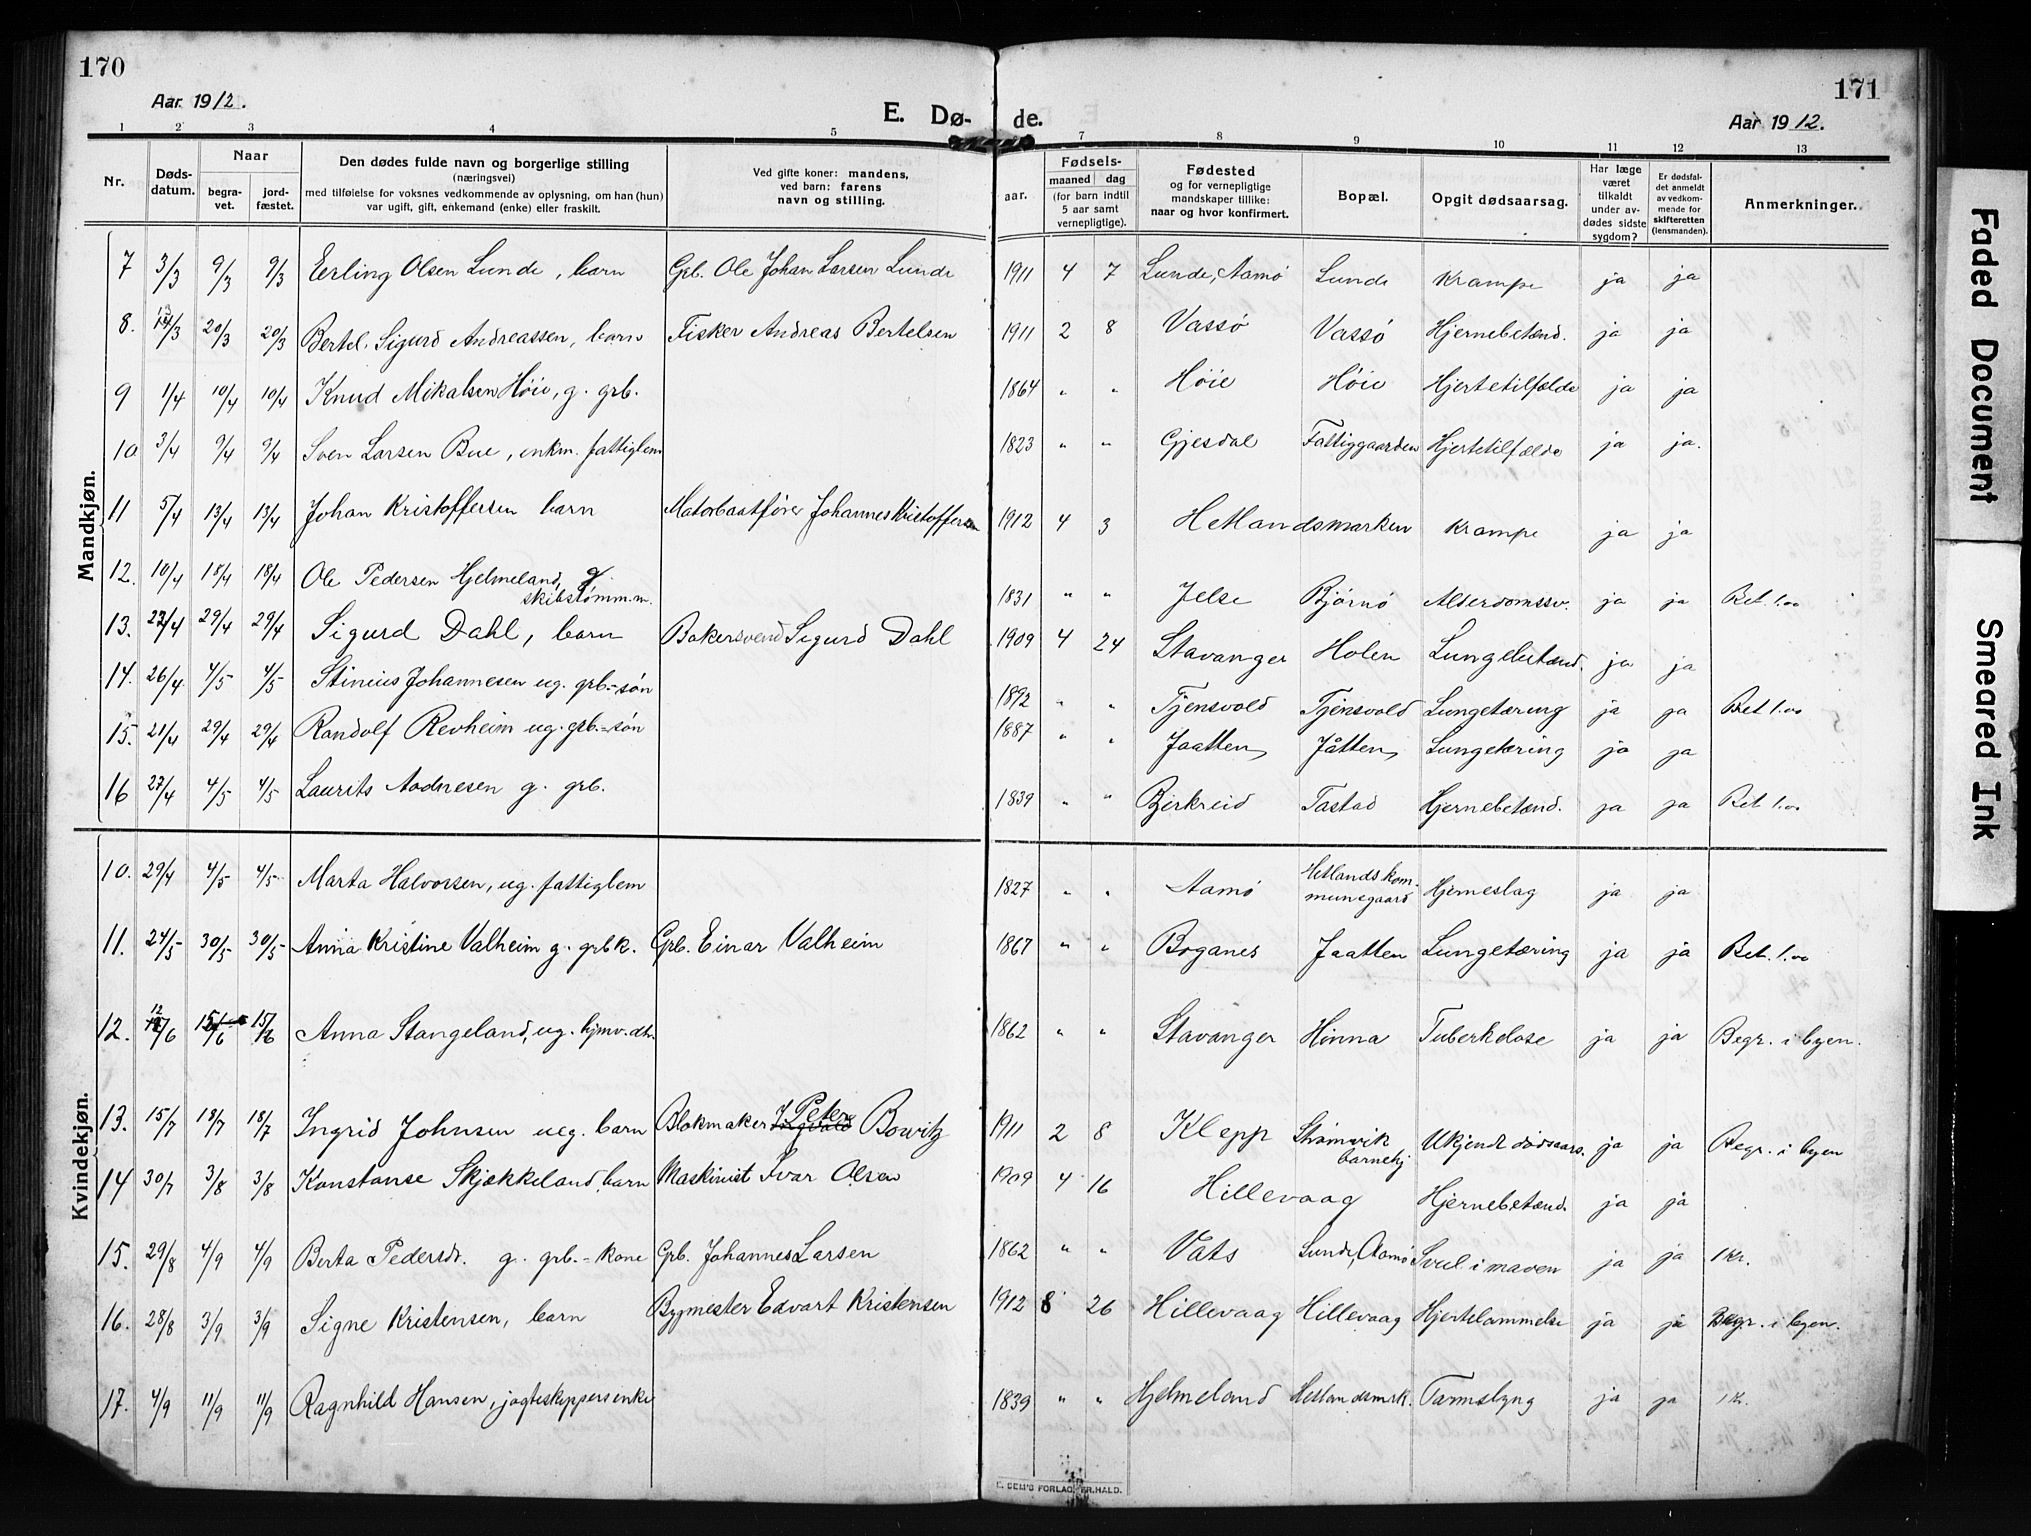 170
171
Aar 1912.
E. Dø-
de.
Aar 1912.
1 2 3 4 5 7 8 9 10 11 12 13
Nr.
Døds-
datum.
Naar
begra-
vet.
jord-
fæstet.
Den dødes fulde navn og borgerlige stilling
(næringsvei)
med tilføielse for voksnes vedkommende av oplysning, om han (hun)
var ugift, gift, enkemand (enke) eller fraskilt.
Ved gifte koner: mandens,
ved barn: farens
navn og stilling.
Fødsels-
aar.
maaned
dag
(for barn indtil
5 aar samt
vernepligtige).
Fødested
og for vernepligtige
mandskaper tillike:
naar og hvor konfirmert.
Bopæl.
Opgit dødsaarsag.
Har læge
været
tilkaldt
under av-
dødes sidste
sygdom?
Er dødsfal-
det anmeldt
av vedkom-
mende for
skifteretten
(lensmanden).
Anmerkninger.
Mandkjøn.
7 3/3 9/3 9/3 Eerling Olsen Lunde, barn Grb. Ole Johan Larsen Lunde 1911 4 7 Lunde, Aamø Lunde Krampe ja ja
8. /3 20/3 20/3 Bertel Sigurd Andreassen, barn Fisker Andreas Bertelsen 1911 2 8 Vassø Vassø Hjernebetænd. ja ja
9 1/4 10/4 10/4 Knud Mikalsen Høie, g. grb. 1864 " " Høie Høie Hjertetilfælde ja ja
10 3/4 9/4 9/4 Sven Larsen Bue, enkm. fattiglem 1823 " " Gjesdal Fattiggaarden Hjertetilfælde ja ja.
11 5/4 13/4 13/4 Johan Kristoffersen barn Motorbaatfører Johannes Kristoffersen 1912 4 3 Hetlandsmarken Krampe ja ja
12. 10/4 15/4 18/4 Ole Pedersen Hjelmeland, g.
skibstømm.m. 1831 " " Jelse Bjørnø Alderdomssv. ja ja Bet. 1.00
13. 22/4 29/4 29/4 Sigurd Dahl, barn Bakersvend Sigurd Dahl 1909 4 24 Stavanger Holen Lungebetænd. ja ja
14. 26/4 4/5 4/5 Stinius Johannesen ug. grb.-søn 1892 " " Tjensvold Tjensvold Lungetæring ja ja Bet 1.00
15. 21/4 29/4 29/4 Randolf Revheim ug. grb.-søn 1887 " " Jaatten, Jåtten, Lungetæring ja ja
16 27/4 4/5 4/5 Laurits Aadnesen g. grb. 1839 " " Bjerkreid Tastad Hjernebetænd. ja ja Bet 1.00
Kvindekjøn.
10. 29/4 4/5 4/5 Marta Halvorsen, ug. fattiglem 1827 " " Aamø Hetlands kom-
munegaard Hjerneslag ja ja
11. 24/5 30/5 30/5 Anna Kristine Valheim g. grbk. Grb. Einar Valheim 1867 " " Boganes Jaatten Lungetæring ja ja Bet. 1.00
12. 12/6 15/6 15/6 Anna Stangeland, ug. hjmv. dtr 1862 " " Stavanger Hinna Tuberkulose ja ja Begr. i byen.
13. 15/7 18/7 18/7 Ingrid Johnsen ueg. barn Blokmaker J. Peter Ingvald Bowitz 1911 2 8 Klepp Strømvik
barnehj. Ukjendt dødsaars. ja ja Begr. i byen
14 30/7 3/8 3/8 Konstanse Skjækkeland, barn Maskinist Ivar Olsen 1909 4 16 Hillevaag Hjernebetænd. ja ja
15. 29/8 4/9 4/9 Berta Pedersdr. g. grb.-kone Grb. Johannes Larsen 1862 " " Vats Lunde, Aamø Svul i maven ja ja 1 kr.
16. 28/8 3/9 3/9 Signe Kristensen, barn Bygmester Edvart Kristensen 1912 8 26 Hillevaag Hillevaag Hjertelammelse ja ja Begr. i byen.
17. 4/9 11/9 11/9 Ragnhild Hansen, jagteskippersenke 1839 " " Hjelmeland Hetlandsmrk. Tarmslyng ja ja 1 kr.
E. SEM'S FORLAG, FR.HALD.
Faded Document
Smeared Ink